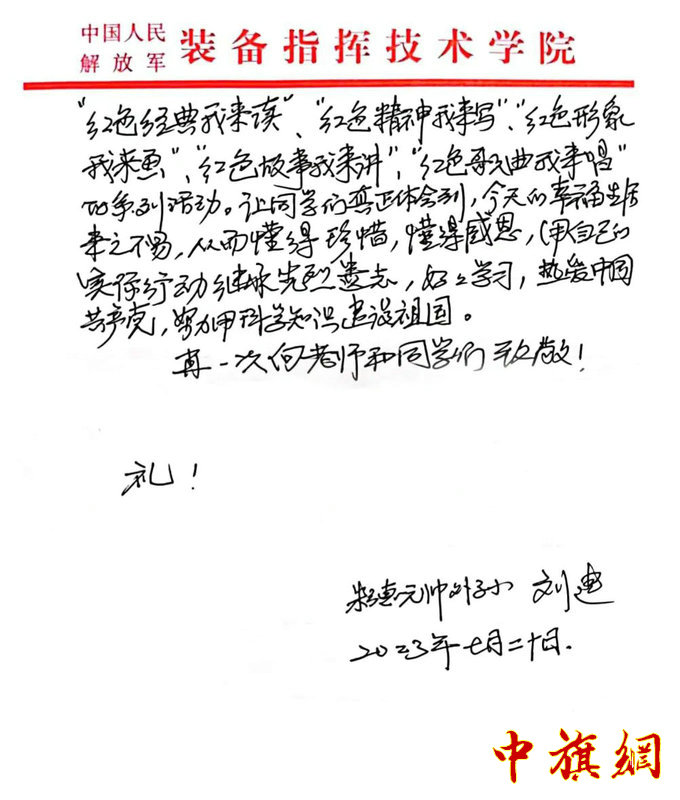 中国人民
解放军 装备指挥技术学院
“红色经典我来读”、“红色精神我来写”、“红色形象
我来画”、“红色故事我来讲”、“红色歌曲我来唱”
的系列活动。让同学们真正体会到，今天的幸福生活
来之不易，从而懂得珍惜，懂得感恩，用自己的
实际行动继承先烈遗志，好好学习，热爱中国
共产党，努力用科学知识建设祖国。
再一次向老师和同学们致敬！
礼！
朱德元帅外孙 刘建
2023年七月二十日.
中旗網